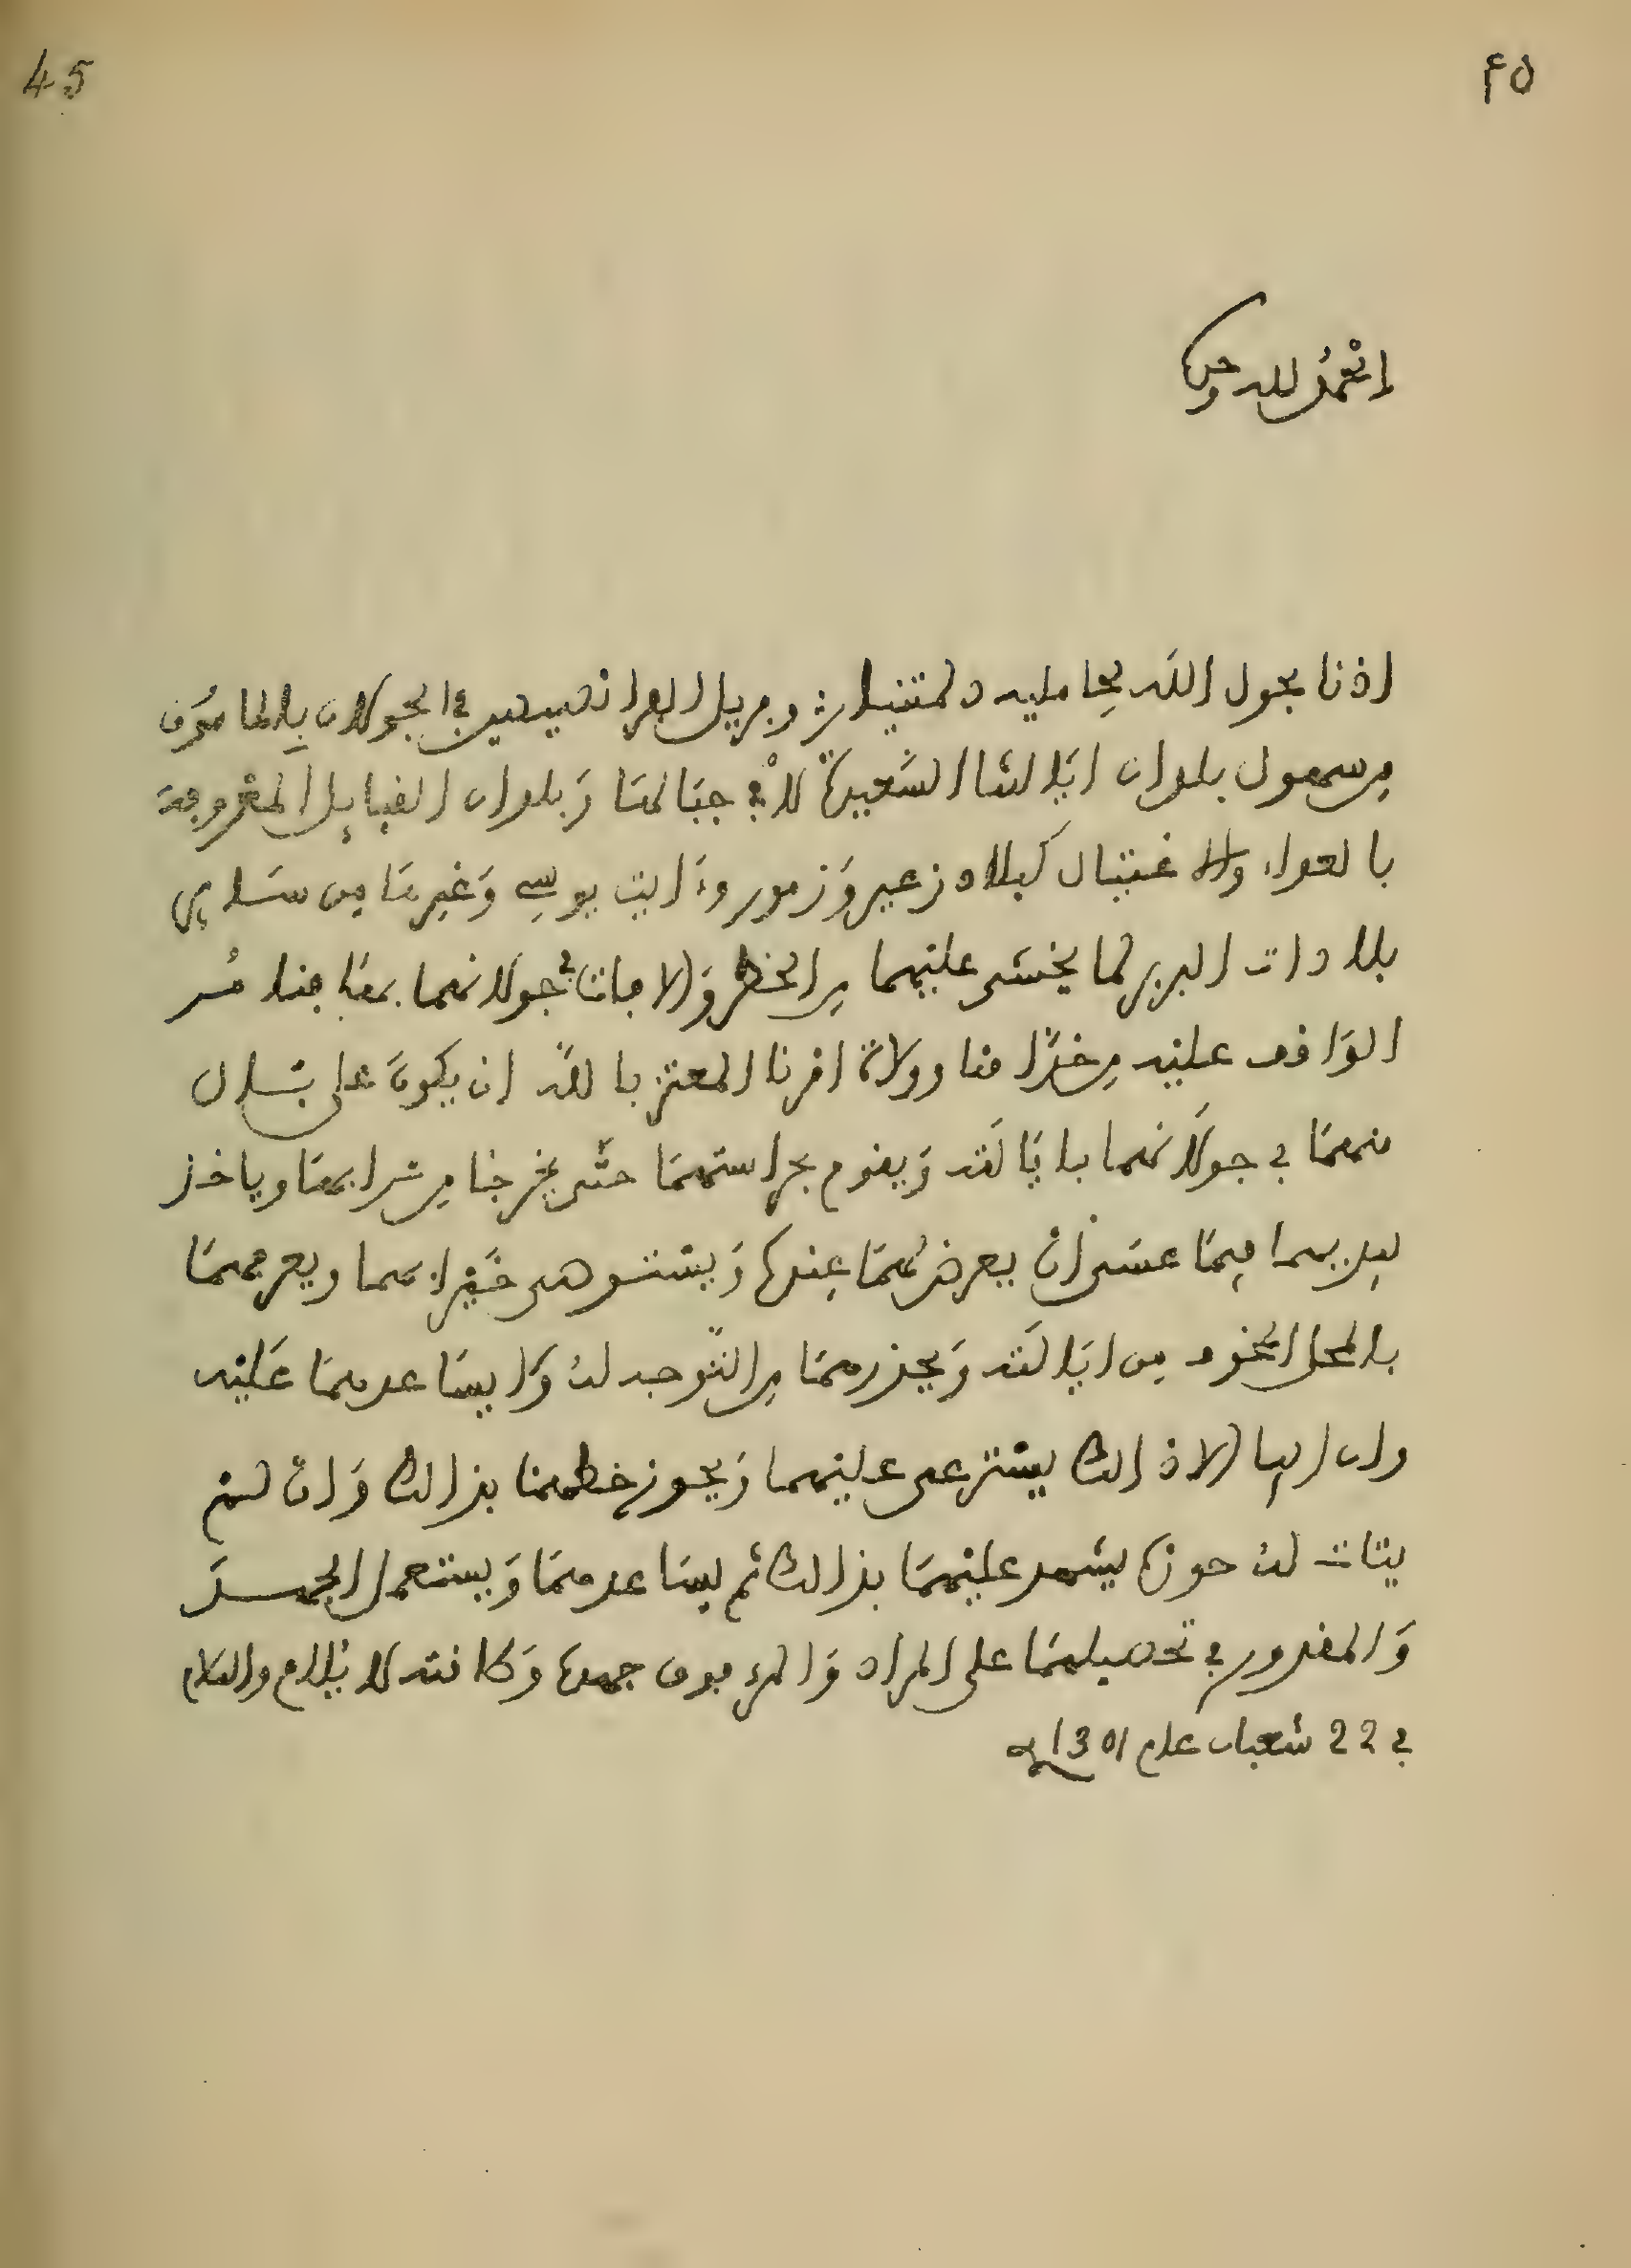 45
٤٥
الحمد لله وحده
اذنا بحول الله لحامليه د لمتنيار ورفيقه الفرانصيصيين في الجولان بالمامون
من سهول بلدان ايالتنا السعيدة لا في جبالها وبلدان القبايل المعروفة
بالعداء والاغتيال كبلاد زعير وزمور وءايت يوسي وغيرها من ساير
بلادات البربر لما يخشى عليهما من الخطر والافات في جولانهما بها فنامر
الواقف عليه من خدامنا وولاة امرنا المعتز بالله ان يكون على بال
منهما في جولانهما بايالته ويقوم بحراستهما حتى يخرجا من ترابها وياخذ
بيديهما فيما عسى ان يعرض لهما عنده ويستوصي خيرا بهما ويعرفهما
بالمحل المخوف من ايالته ويحذرهما من التوجه له ولا يساعدهما عليه
وان ابيا الا ذالك يسترعى عليهما ويحوز خطهما بذالك وان لم
يتات له حوزه يشهد عليهما بذالك ثم يساعدهما ويستعمل الجهد
والمقدور في تحصيلهما على المراد والمرغوب جهده وطاقته لا يلام والسلام
في 22 شعبان عام 1301